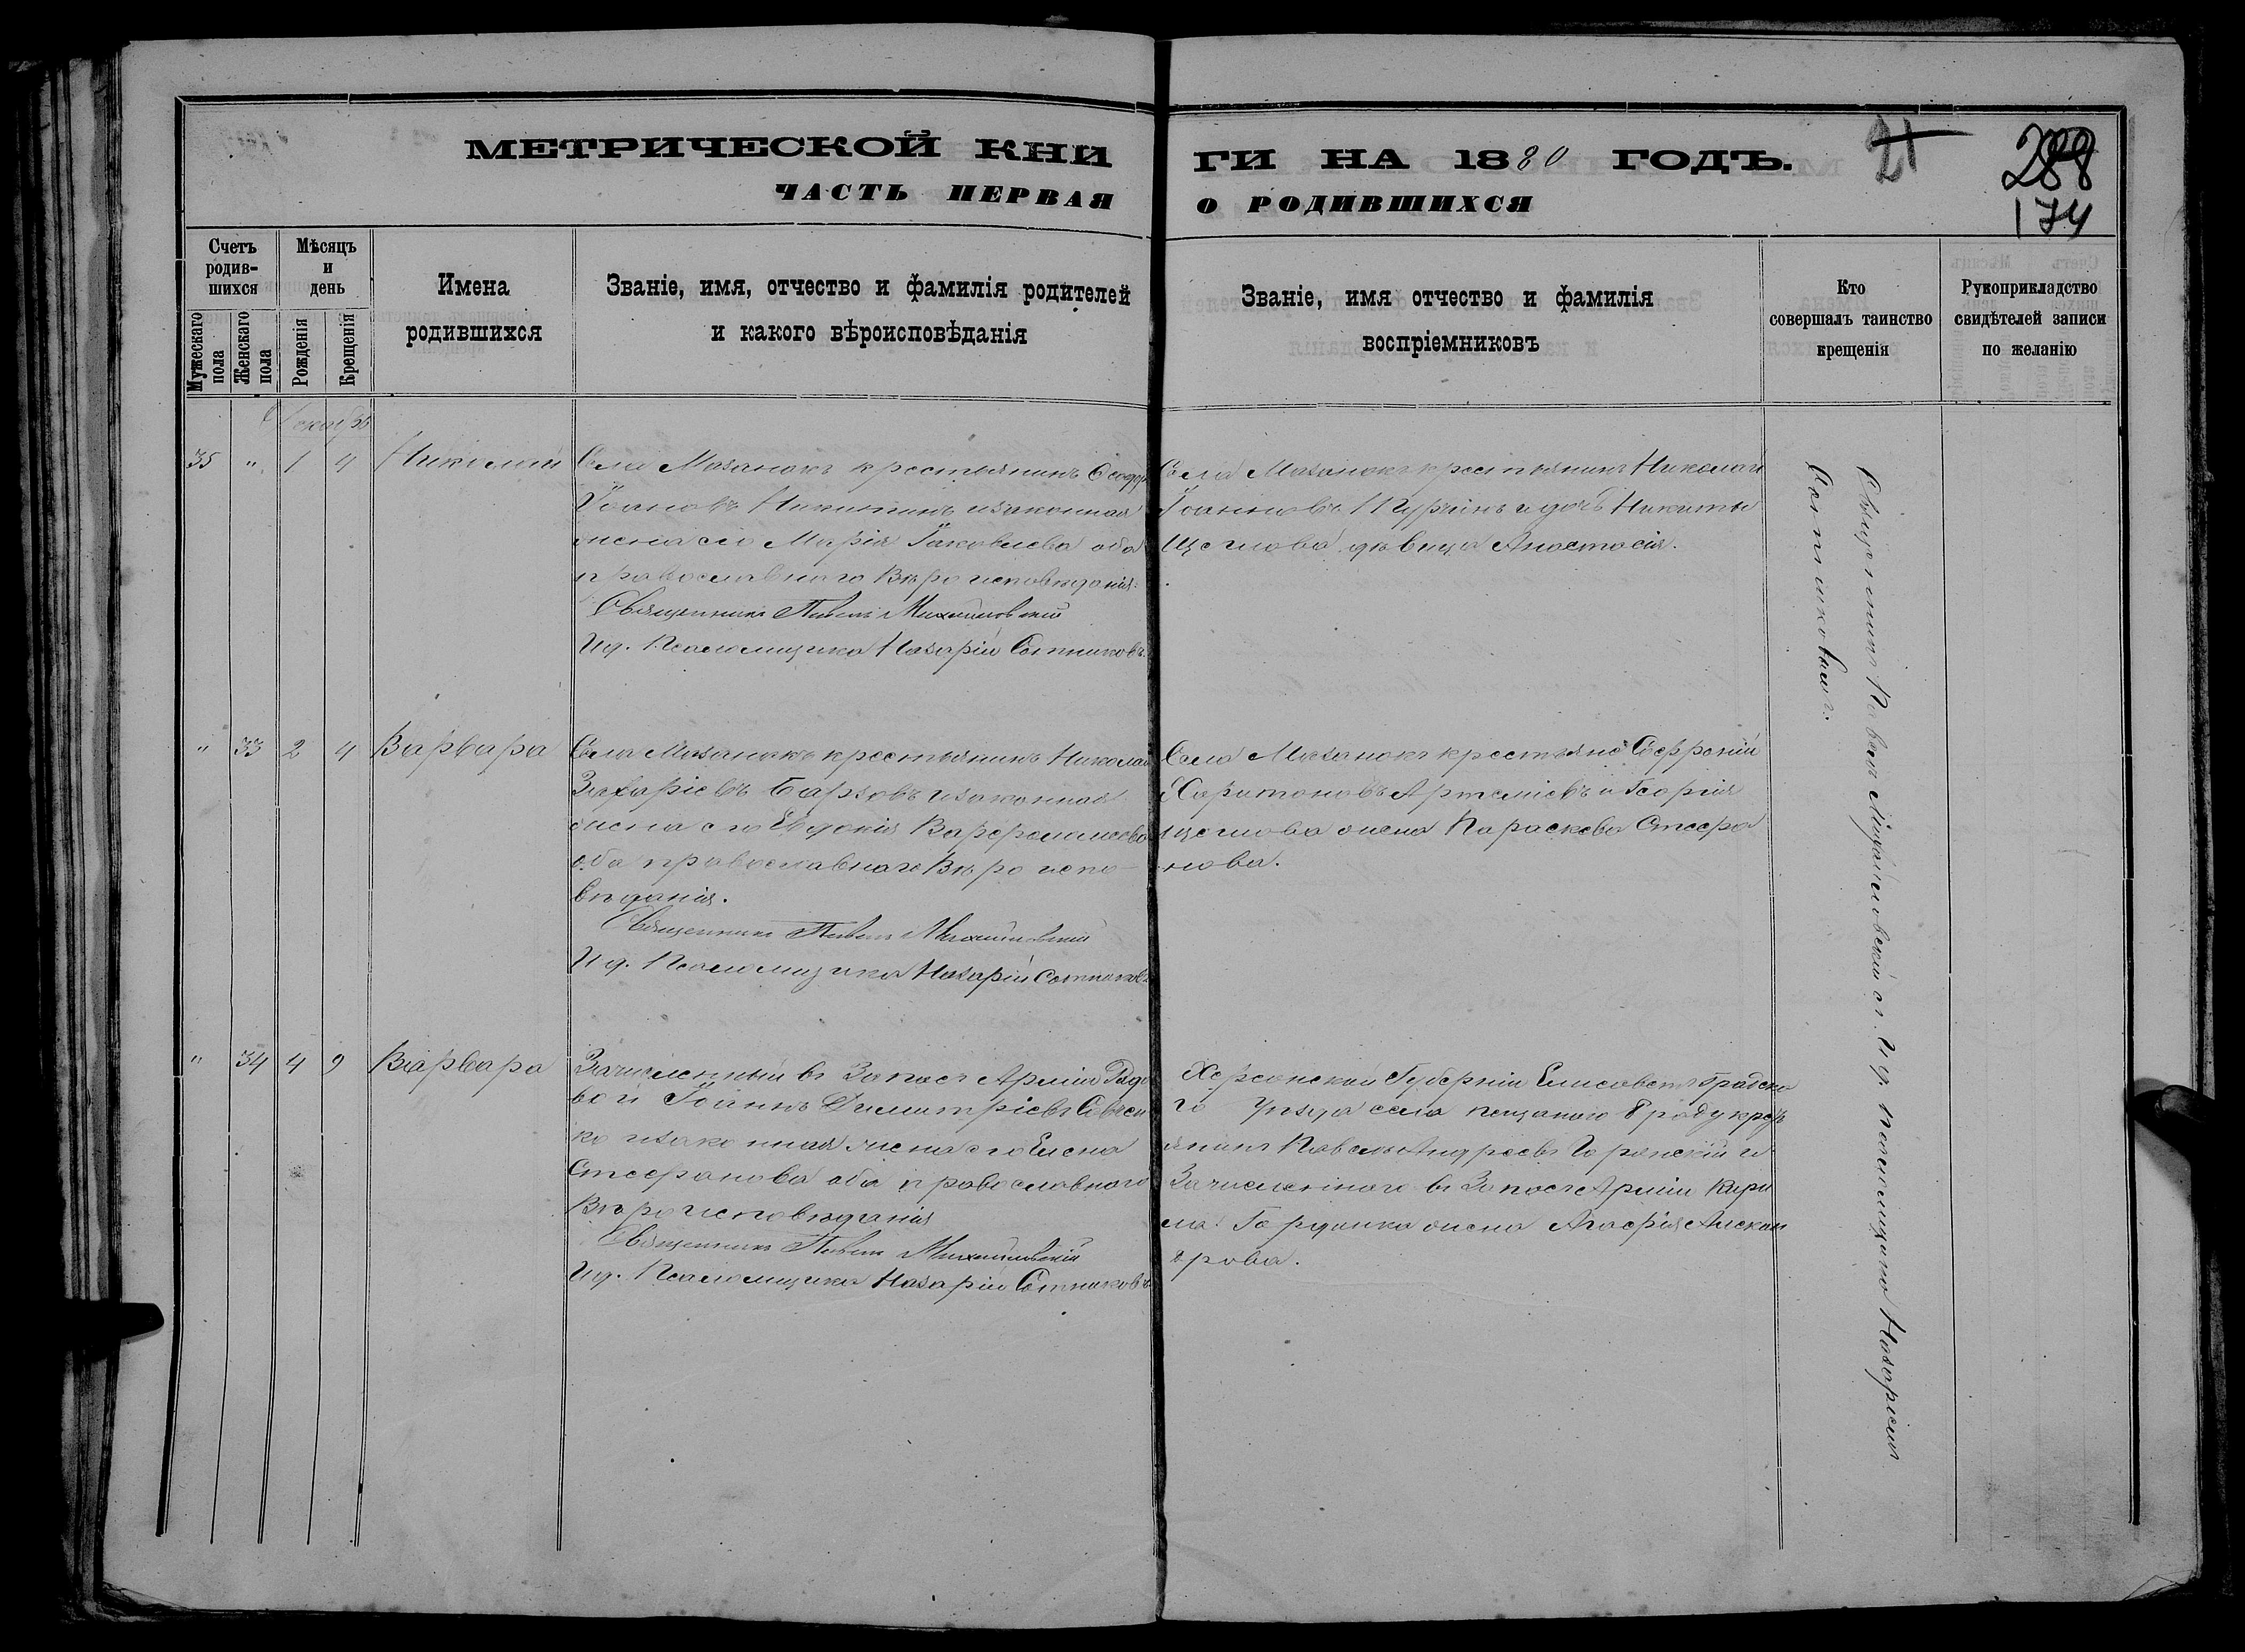 МЕТРИЧЕСКОЙ КНИГИ НА 1880 ГОДЪ.
21
288
174
ЧАСТЬ ПЕРВАЯ О РОДИВШИХСЯ
Счетъ родив-шихся
Мужескаго пола
Женскаго пола
Мѣсяцъ и день
Рожденія
Крещенія
Имена родившихся
Званіе, имя, отчество и фамилія родителей
и какого вѣроисповѣданія
Званіе, имя отчество и фамилія
воспріемниковъ
Кто
совершалъ таинство
крещенія
Рукоприкладство
свидѣтелей записи
по желанію
Декабрь
35 " 1 4 Николай
Села Мазанокъ крестьянинъ
Іоановъ Никитинъ и законная
жена его Марія Іаковлева оба
православнаго Вѣроисповѣданія.
Священникъ Павелъ Михайловскій
Ид. Псаломщика Назарій Сотниковъ.
Села Мазанокъ крестьянинъ Николай
Іоанновъ и дочь Никиты
Щеглова дѣвица Анастасія.
" 33 2 4 Варвара
Села Мазанокъ крестьянинъ Николай
Захаріевъ и законная
жена его Евдокія Варфоломеева
оба православнаго Вѣроиспо-
вѣданія.
Священникъ Павелъ Михайловскій
Ид. Псаломщика Назарій Сотниковъ
Села Мазанокъ крестьяне Софроній
Харитоновъ Артеміевъ и Георгія
Щеглова жена Параскева Стефа
нова.
" 34 4 9 Варвара
Зачисленный въ Запасъ Арміи Рядо
вой Іоаннъ Димитріевъ Савчен
ко и законная жена его Елена
Стефанова оба православнаго
Вѣроисповѣданія
Священникъ Павелъ Михайловскій
Ид. Псаломщика Назарій Сотниковъ
Херсонской Губерніи Елисаветградска
го Уѣзда села Песчаного Броду крест
янинъ Павелъ Андреевъ и
Зачисленного въ Запасъ Арміи Кири
ла жена Агафія Алексан
дрова.
Священникъ Павелъ Михайловскій съ Ид. псаломщика Назаріемъ
Сотниковымъ.